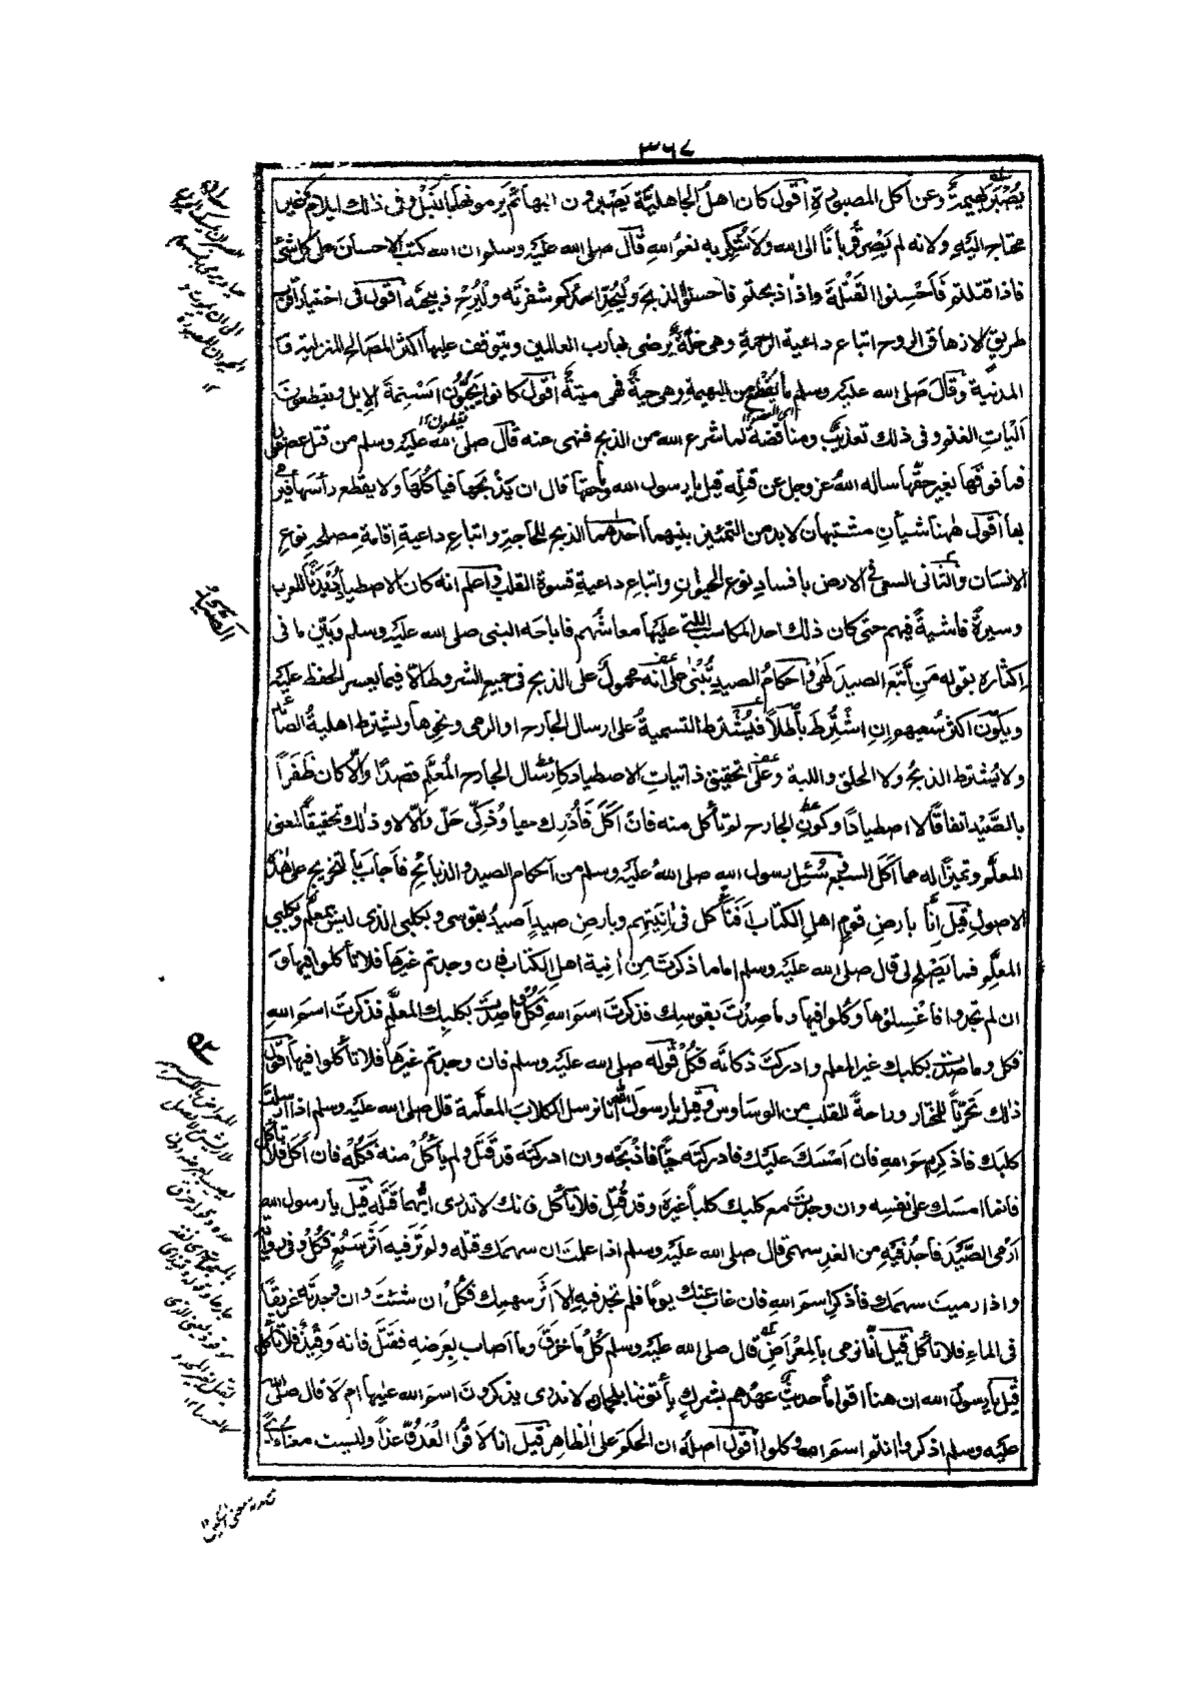 ٣٦٧
يُصْبَرَ بهيمةٌ وعن اكل المصبورة اقول كان اهل الجاهلية يَصْبِرون البهائم يرمونها بالنبل وفى ذلك ايلام غير
محتاج اليه ولانه لم يَصِر قربانًا الى الله ولا شُكِر به نعم الله قال صلى الله عليه وسلم ان الله كتب الاحسان على كل شئ
فاذا قتلتم فَاَحْسِنوا القِتْلة واذا ذبحتم فاحسنوا الذبح ولْيُحِدَّ احدكم شفرته ولْيُرِحْ ذبيحته اقول فى اختيار اقرب
طريق لازهاق الروح اتباع داعية الرحمة وهى خلة يرضى بها رب العالمين ويتوقف عليها اكثر المصالح المنزلية و
المدنية وقال صلى الله عليه وسلم ما يُقْطَع من البهيمة وهى حية فهى ميتة اقول كانوا يَجُبُّون اَسْنِمَةَ الابل ويقطعون
اَلْيَاتِ الغنم وفى ذلك تعذيب ومناقضة لما شرع الله من الذبح فنهى عنه قال صلى الله عليه وسلم من قتل عصفورا
فما فوقها بغير حقها ساله اللهُ عز وجل عن قتله قيل يا رسول الله وما حقها قال ان يذبحها فياكلها ولا يقطع رأسها فيرمى
بها اقول ههنا شيأن مشتبهان لا بد من التمييز بينهما احدهما الذبح للحاجة واتباع داعيةِ اقامة مصلحة نوع
الانسان والثانى السعى فى الارض بافساد نوع الحيوان واتباع داعية قسوة القلب واعلم انه كان الاصطياد دَيْدَنًا للعرب
وسيرةً فاشيةً فيهم حتى كان ذلك احد المكاسب التى عليها معاشهم فاباحه النبى صلى الله عليه وسلم وبَيَّن ما فى
اِكثاره بقوله مَن اَتْبَعَ الصيدَ لَهٰى واحكام الصيد تُبْنٰى على انه محمول على الذبح فى جميع الشروط الا فيما يعسر الحفظ عليه
ويكون اكثر سعيهم ان اشتُرِط باطلاً فيُشترط التسمية على ارسال الجارح او الرمى ونحوها ويشترط اهلية الصائد
ولا يُشترط الذبح ولا الحلق واللبة وعلى تحقيق ذاتيات الاصطياد كارسال الجارح المُعَلَّم قصدًا والا كان ظَفَرًا
بالصَّيد اتفاقًا لا اصطيادًا وكون الجارح لم تأكل منه فان اَكَل فَاُدرِك حيا وذُكّى حلّ والا لا وذلك تحقيقًا لمعنى
المعلَّم وتميزًا له مما اَكَل السبع سُئِل رسول الله صلى اللهُ عليه وسلم من احكام الصيد والذبائح فاجاب بالتخريج على هذه
الاصول قيل اِنَّا بارضِ قومٍ اهلِ الكتاب اَفَنأكل فى انيتهم وبارضِ صيدٍ اَصيدُ بقوسى وبكلبى الذى ليس بمعلَّم وبكلبى
المعلَّم فما يَصْلح لى قال صلى الله عليه وسلم اما ما ذكرتَ من انية اهل الكتاب فان وجدتم غيرها فلا تأكلوا فيها و
ان لم تجدوا فاغسلوها وكُلوا فيها وما صِدْتَ بقوسك فذكرتَ اسم اللهِ فكل وما صدت بكلبك المعلَّم فذكرتَ اسم اللهِ
فكل وما صدت بكلبك غير المعلم وادركتَ ذكاته فَكُلْ قوله صلى الله عليه وسلم فان وجدتم غيرها فلا تأكلوا فيها اقول
ذلك تحرّيًا للمختار وراحةً للقلب من الوساوس وقيل يا رسول الله انا نرسل الكلاب المعلَّمة قال صلى الله عليه وسلم اذا ارسلت
كلبك فاذكر اسم الله فان اَمْسَكَ عليك فادركته حيًّا فاذبحه وان ادركتَه قد قَتَل ولم يأكُلْ منه فَكُلْه فان اَكَل فلا تأكل
فانما امسك على نفسه وان وجدت مع كلبك كلبًا غيرَه وقد قُتِل فلا تأكل فانك لا تدرى ايهما قتله قيل يا رسول الله
اَرْمى الصَّيْدَ فاجدُ فيه من الغدِ سهمى قال صلى الله عليه وسلم اذا علمتَ ان سهمك قتله ولم تَرَ فيه اَثَرَ سَبُعٍ فكُلْ وفى رواية
واذا رميتَ سهمك فاذكر اسم الله فان غاب عنك يومًا فلم تجد فيه الا اَثَر سهمك فكُلْ ان شئتَ وان وجدتَه غريقًا
فى الماء فلا تأكل قيل انا نرمى بالمِعْراض قال صلى الله عليه وسلم كُلْ ما خَزَقَ وما اصاب بِعَرضه فقتَل فانه وقيذ فلا تأكل
قيل يا رسول الله ان هنا اقواما حديث عهدهم بشرك يأتوننا بلحمان لا ندرى يذكرون اسم الله عليها ام لا قال صلى الله
عليه وسلم اذكروا انتم اسم الله وكلوا اقول اصله ان الحكم على الظاهر قيل انا لاقوا العدو غدًا وليست معنا مُدًى
الصيد